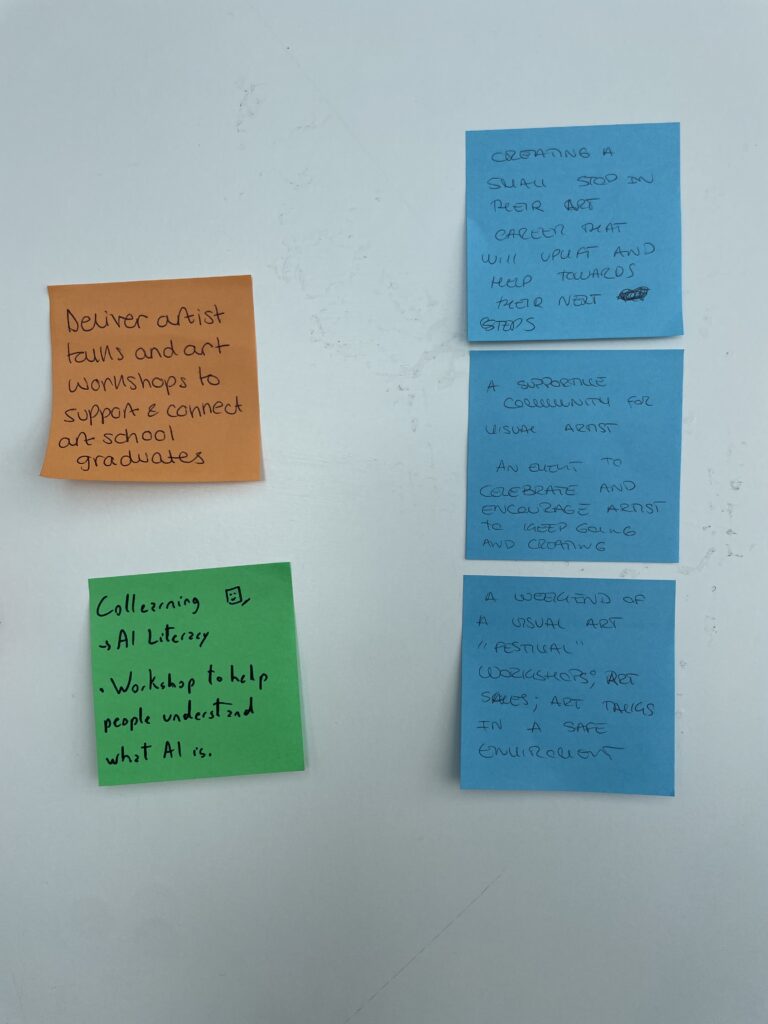 Deliver artist
talks and art
workshops to
support & connect
art school
graduates
Collearning
→ AI Literacy
• Workshop to help
people understand
what AI is.
CREATING A
SMALL STOP IN
THEIR ART
CAREER THAT
WILL UPLIFT AND
HELP TOWARDS
THEIR NEXT
STEPS
A SUPPORTIVE
COMMUNITY FOR
VISUAL ARTIST
AN EVENT TO
CELEBRATE AND
ENCOURAGE ARTIST
TO KEEP GOING
AND CREATING
A WEEKEND OF
A VISUAL ART
"FESTIVAL"
WORKSHOPS; ART
SALES; ART TALKS
IN A SAFE
ENVIROMENT